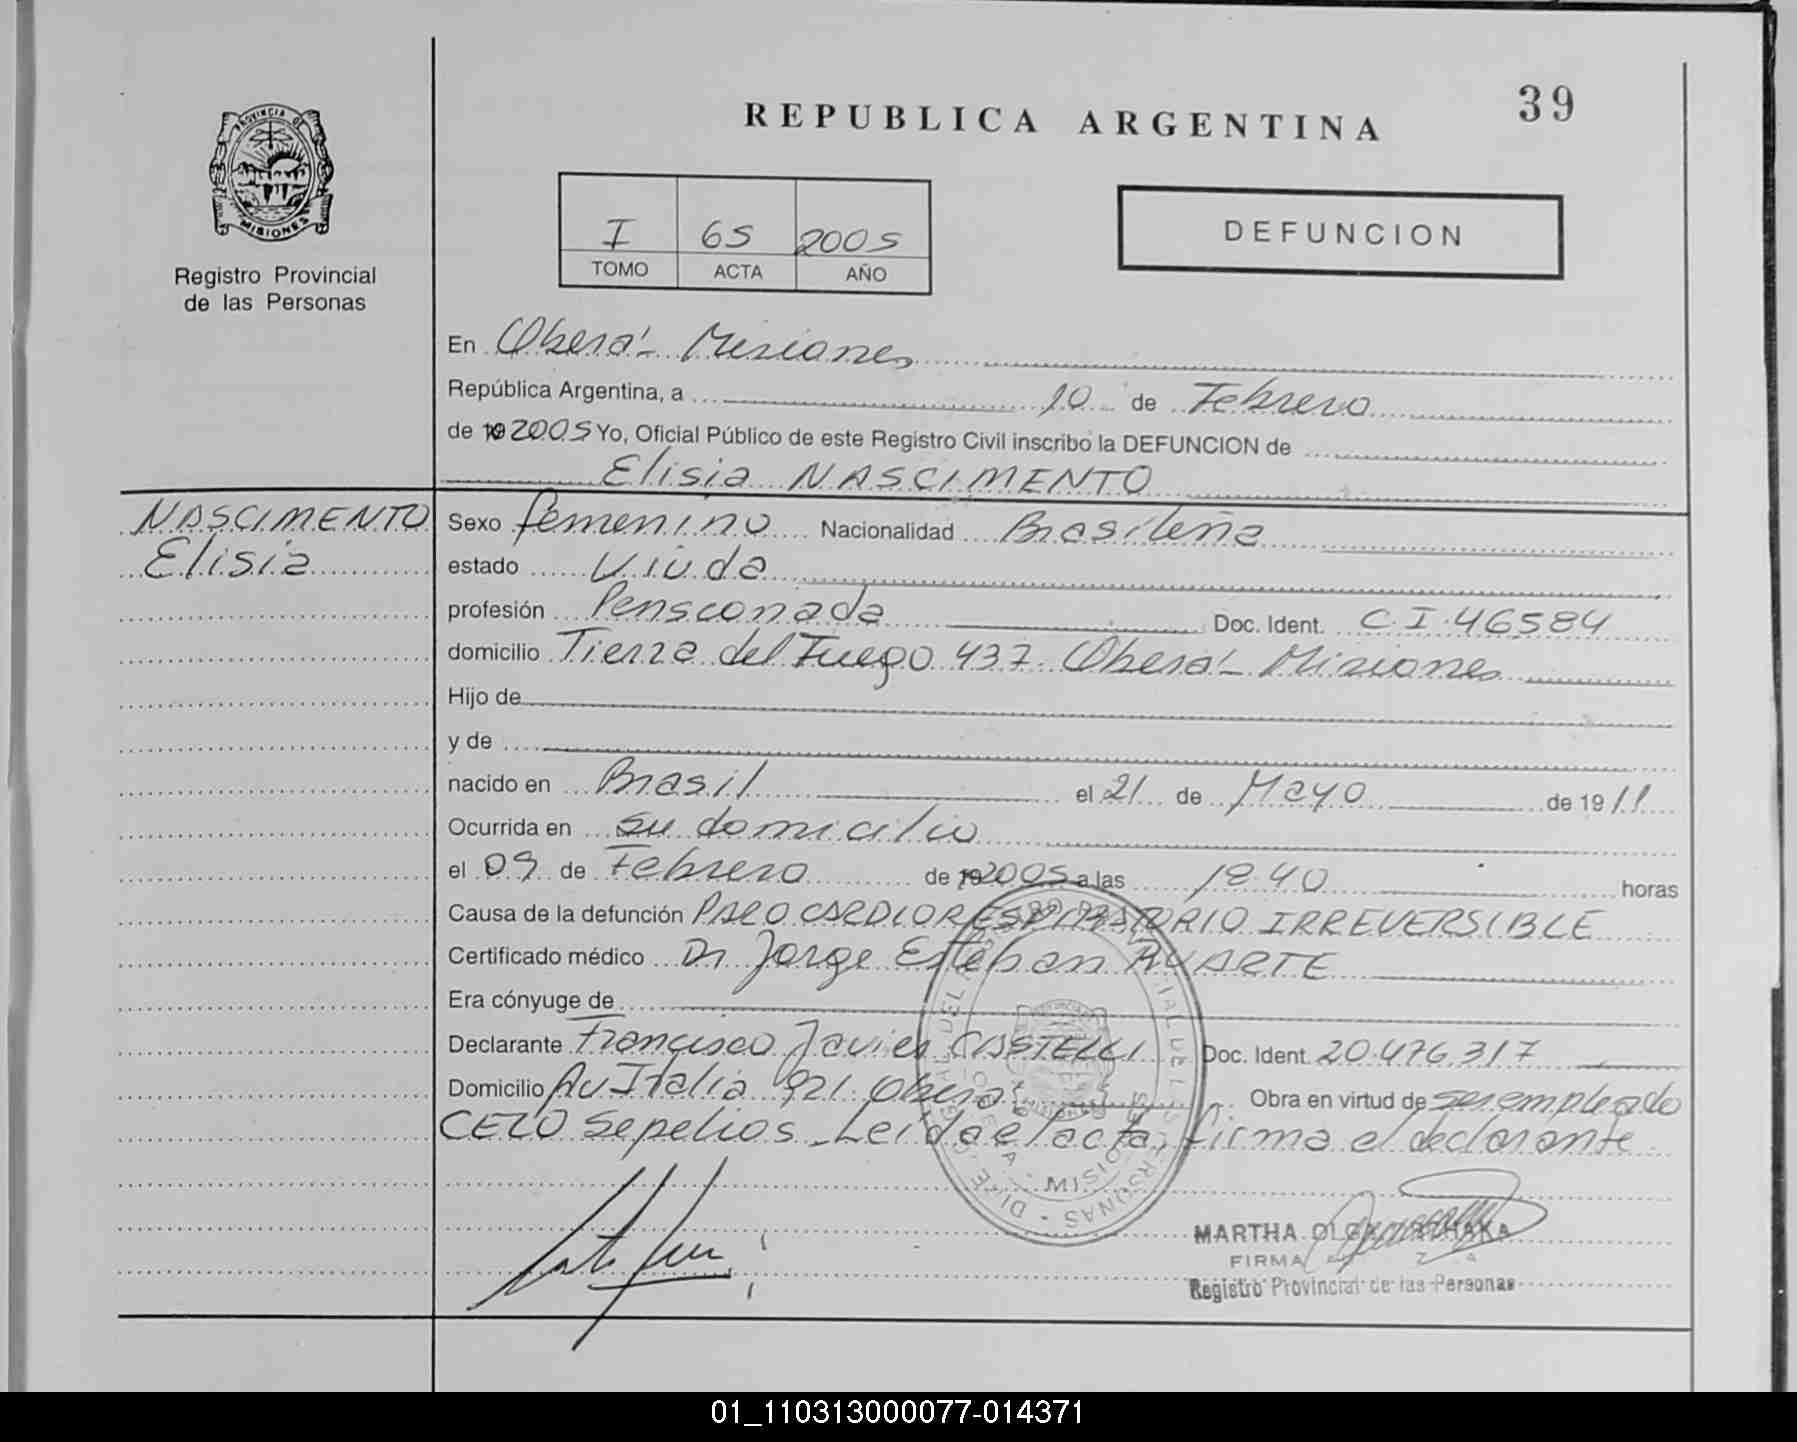 REPUBLICA ARGENTINA
39
PROVINCIA DE
MISIONES
Registro Provincial
de las Personas
I 65 2005
TOMO ACTA AÑO
DEFUNCION
En Oberá - Misiones
República Argentina, a 10 de Febrero
de 19 2005 Yo, Oficial Público de este Registro Civil inscribo la DEFUNCION de
Elisia NASCIMENTO
NASCIMENTO
Elisia
Sexo femenino Nacionalidad Brasileña
estado Viuda
profesión Pensionada Doc. Ident. C.I. 46584
domicilio Tierra del Fuego 437 Oberá - Misiones
Hijo de
y de
nacido en Brasil el 21 de Mayo de 19 11
Ocurrida en su domicilio
el 09 de Febrero de 19 2005 a las 18 40 horas
Causa de la defunción PARO CARDIORESPIRATORIO IRREVERSIBLE
Certificado médico Dr Jorge Esteban RUARTE
Era cónyuge de
Declarante Francisco Javier CASTELLI Doc. Ident. 20.476.317
Domicilio Av Italia 921 Oberá Obra en virtud de ser empleado
CELO Sepelios - Leida el acta, firma el declarante
MARTHA OLGA
FIRMA
Registro Provincial de las Personas
01_110313000077-014371